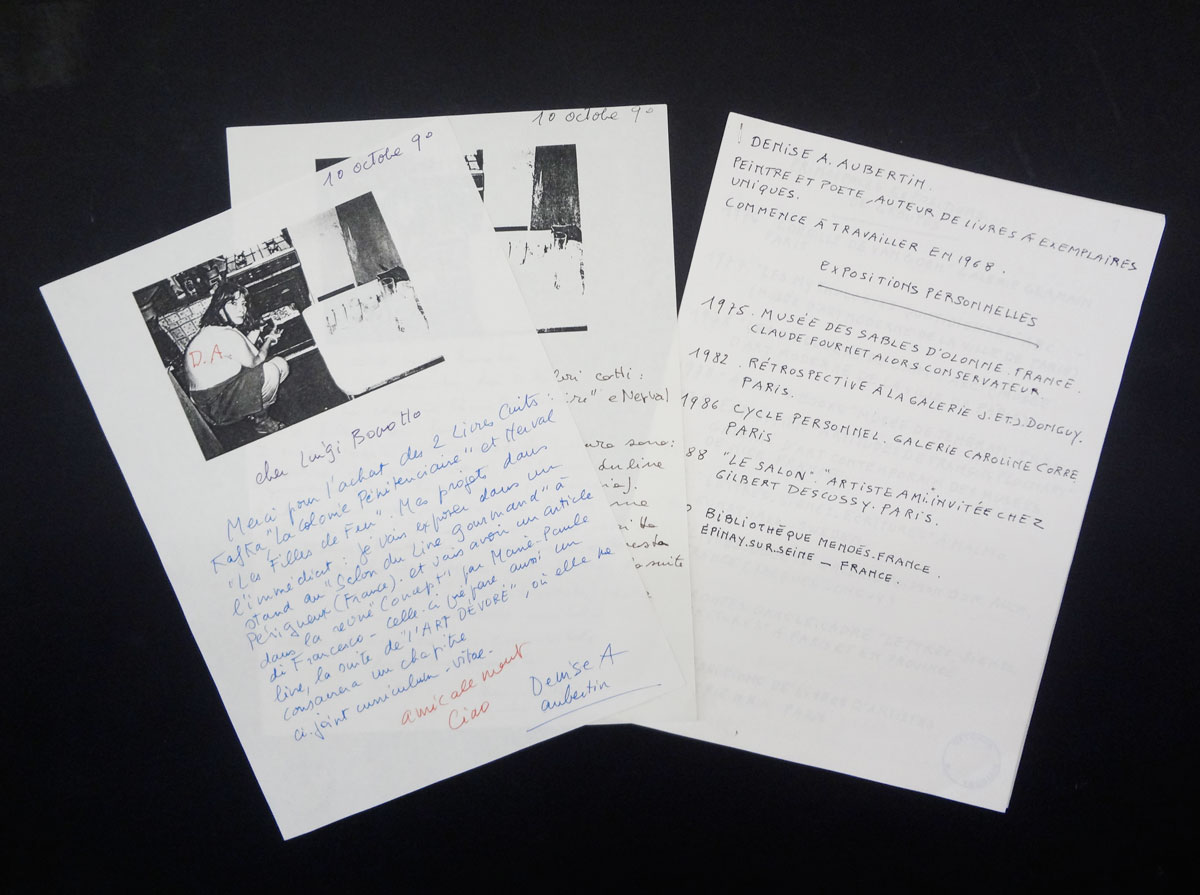 10 octobre 90
D.A.
cher Luigi Bonotto
Merci pour l'achat des 2 Livres Cuits :
Kafka "La Colonie Pénitenciaire" et Nerval
"Les Filles de Feu". Mes projets dans
l'immédiat : je vais exposer dans un
stand au "Salon du Livre Gourmand" à
Périgueux (France). et vais avoir un article
dans la revue "Concept" par Marie-Paule
di Francesco - celle-ci prépare aussi un
livre, la suite de "l'ART DÉVORÉ", où elle me
consacrera un chapitre
ci-joint curriculum-vitae.
amicalement
Ciao
Denise A
aubertin
10 octobre 90
libri cotti :
e Nerval
sono :
du livre
suite
! DENISE A. AUBERTIN.
PEINTRE ET POETE, AUTEUR DE LIVRES À EXEMPLAIRES
UNIQUES.
COMMENCE À TRAVAILLER EN 1968.
EXPOSITIONS PERSONNELLES
1975. MUSÉE DES SABLES D'OLONNE. FRANCE.
CLAUDE FOURNET ALORS CONSERVATEUR
1982. RÉTROSPECTIVE À LA GALERIE J. ET. J. DONGUY.
PARIS.
1986 CYCLE PERSONNEL. GALERIE CAROLINE CORRE
PARIS
88 "LE SALON". "ARTISTE AMI" INVITÉE CHEZ
GILBERT DESCOSSY. PARIS.
BIBLIOTHÈQUE MENDÈS. FRANCE.
ÉPINAY. SUR. SEINE — FRANCE.